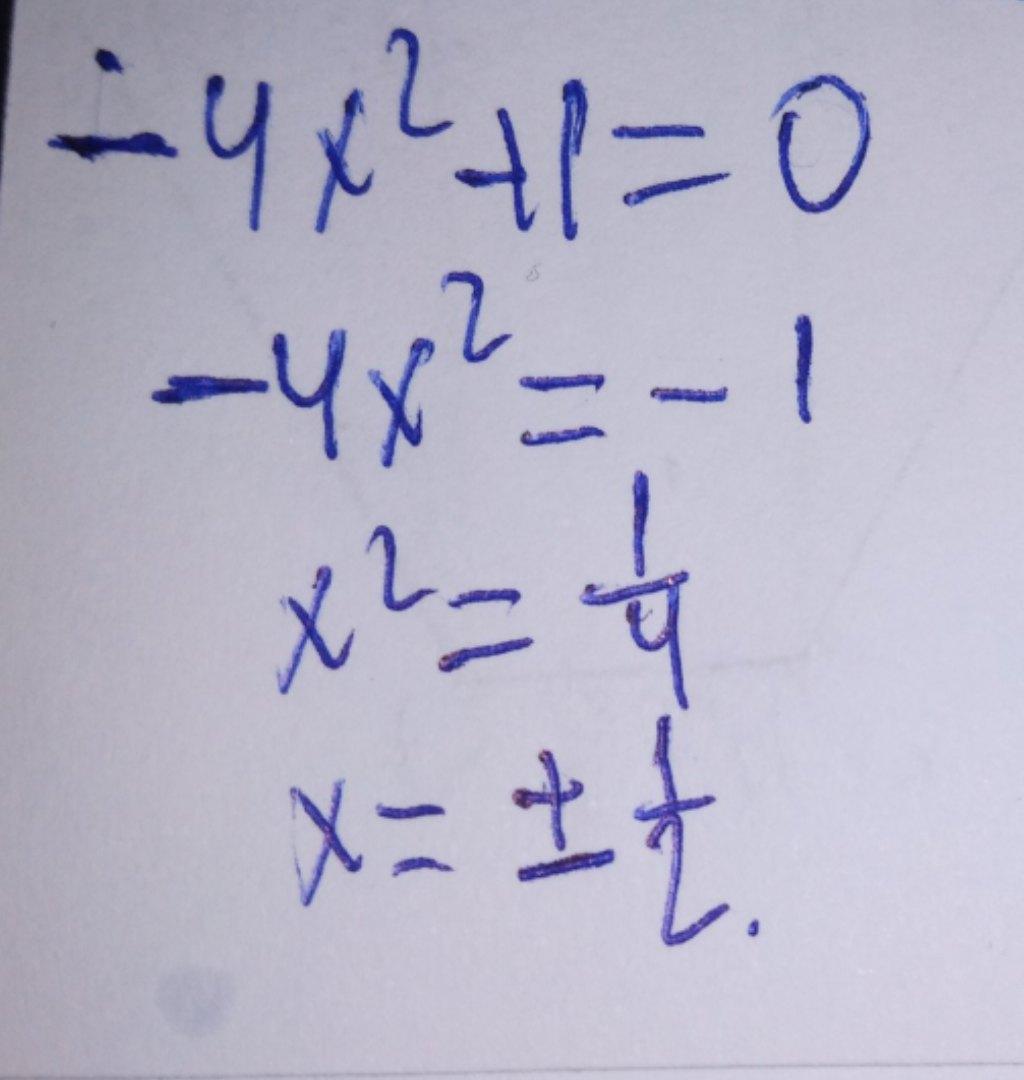 -4x²+1=0
-4x²=-1
x²=1/4
x=±1/2.